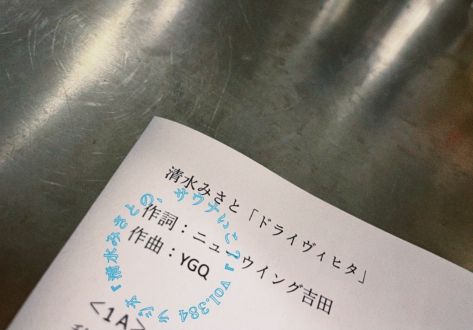 清水みさと「ドライヴィヒタ」
作詞：ニューウイング吉田
作曲：YGQ
<1A>
ラジオ『清水みさとの、サウナいこ？』vol.384